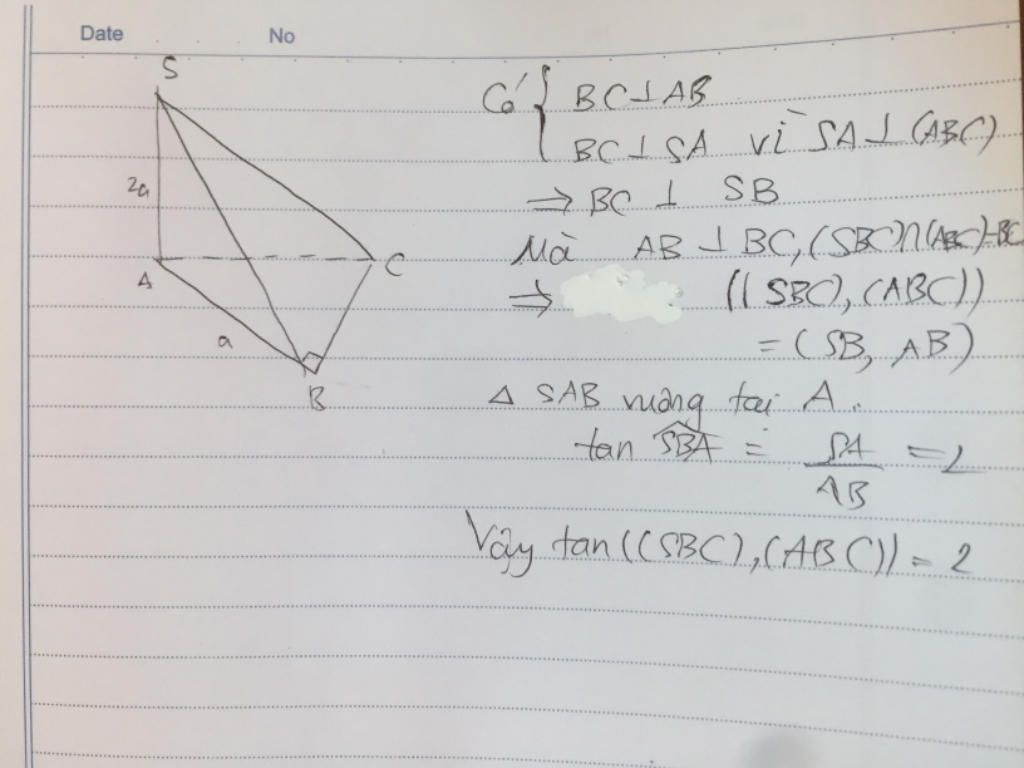 Date No
S
2a
A
C
a
B
Có { BC ⊥ AB
BC ⊥ SA vì SA ⊥ (ABC)
⇒ BC ⊥ SB
Mà AB ⊥ BC, (SBC)∩(ABC)=BC
⇒ ((SBC), (ABC))
= (SB, AB)
Δ SAB vuông tại A.
tan SBA = SA/AB = 2
Vậy tan((SBC),(ABC)) = 2